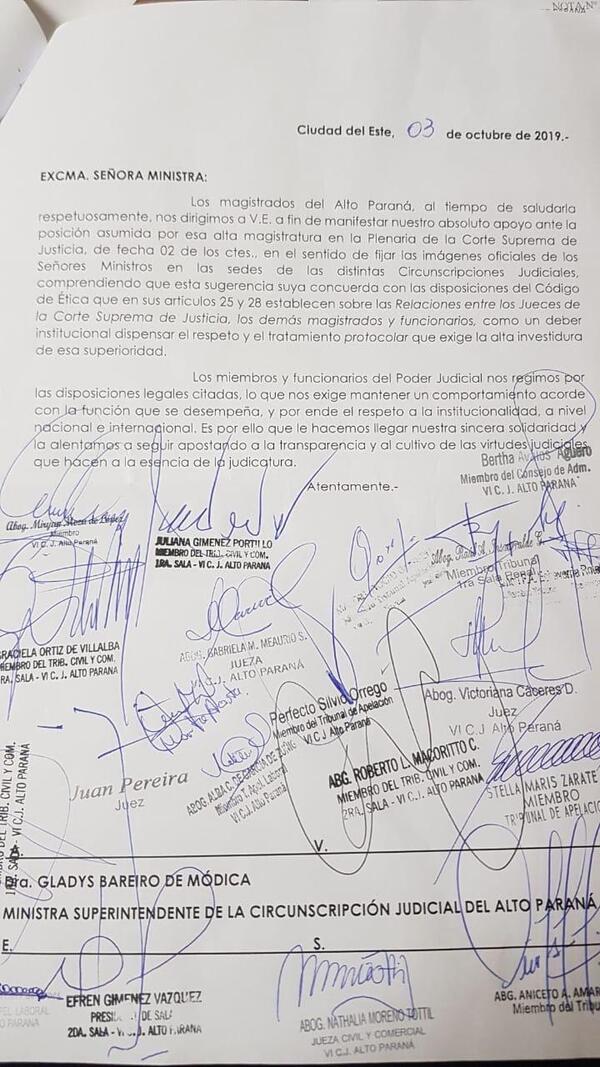 NOTA N°
Ciudad del Este, 03 de octubre de 2019.-
EXCMA. SEÑORA MINISTRA:
Los magistrados del Alto Paraná, al tiempo de saludarla
respetuosamente, nos dirigimos a V.E. a fin de manifestar nuestro absoluto apoyo ante la
posición asumida por esa alta magistratura en la Plenaria de la Corte Suprema de
Justicia, de fecha 02 de los ctes., en el sentido de fijar las imágenes oficiales de los
Señores Ministros en las sedes de las distintas Circunscripciones Judiciales,
comprendiendo que esta sugerencia suya concuerda con las disposiciones del Código
de Ética que en sus artículos 25 y 28 establecen sobre las Relaciones entre los Jueces de
la Corte Suprema de Justicia, los demás magistrados y funcionarios, como un deber
institucional dispensar el respeto y el tratamiento protocolar que exige la alta investidura
de esa superioridad.
Los miembros y funcionarios del Poder Judicial nos regimos por
las disposiciones legales citadas, lo que nos exige mantener un comportamiento acorde
con la función que se desempeña, y por ende el respeto a la institucionalidad, a nivel
nacional e internacional. Es por ello que le hacemos llegar nuestra sincera solidaridad y
la alentamos a seguir apostando a la transparencia y al cultivo de las virtudes judiciales
que hacen a la esencia de la judicatura.
Atentamente.-
Bertha Avalos Agüero
Miembro del Consejo de Adm.
VI C. J. ALTO PARANÁ
Miembro
VI C. J. Alto Paraná
JULIANA GIMENEZ PORTILLO
MIEMBRO DEL TRIB. CIVIL Y COM.
1RA. SALA - VI C. J. ALTO PARANÁ
Miembro Tribunal
1ra Sala Penal
GRACIELA ORTIZ DE VILLALBA
MIEMBRO DEL TRIB. CIVIL Y COM.
SALA - VI C. J. ALTO PARANÁ
ABOG. GABRIELA M. MEAURIO S.
JUEZA
VI C.J. ALTO PARANÁ
Perfecto Silvio Orrego
Miembro del Tribunal de Apelación
VI C.J Alto Paraná
Abog. Victoriana Cáceres D.
Juez
VI C.J Alto Paraná
Juan Pereira
Juez
Miembro T. Apel. Laboral
VI C.J. Alto Paraná
ABG. ROBERTO L. MACORITTO C.
MIEMBRO DEL TRIB. CIVIL Y COM.
2RA. SALA - VI C.J. ALTO PARANÁ
STELLA MARIS ZARATE
MIEMBRO
TRIBUNAL DE APELACIO
DEL TRIB. CIVIL Y COM.
SALA - VI C.J. ALTO PARANÁ
V.
Dra. GLADYS BAREIRO DE MÓDICA
MINISTRA SUPERINTENDENTE DE LA CIRCUNSCRIPCIÓN JUDICIAL DEL ALTO PARANÁ
E. S.
EFREN GIMENEZ VAZQUEZ
2DA. SALA - VI C.J. ALTO PARANA
ABOG. NATHALIA MORENO TOTTIL
JUEZA CIVIL Y COMERCIAL
VI C.J. ALTO PARANÁ
ABG. ANICETO A. AMAR
Miembro del Trib
APEL LABORAL
PARANA